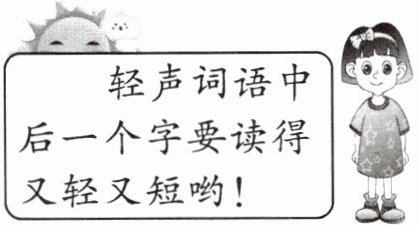 轻声词语中
后一个字要读得
又轻又短哟！